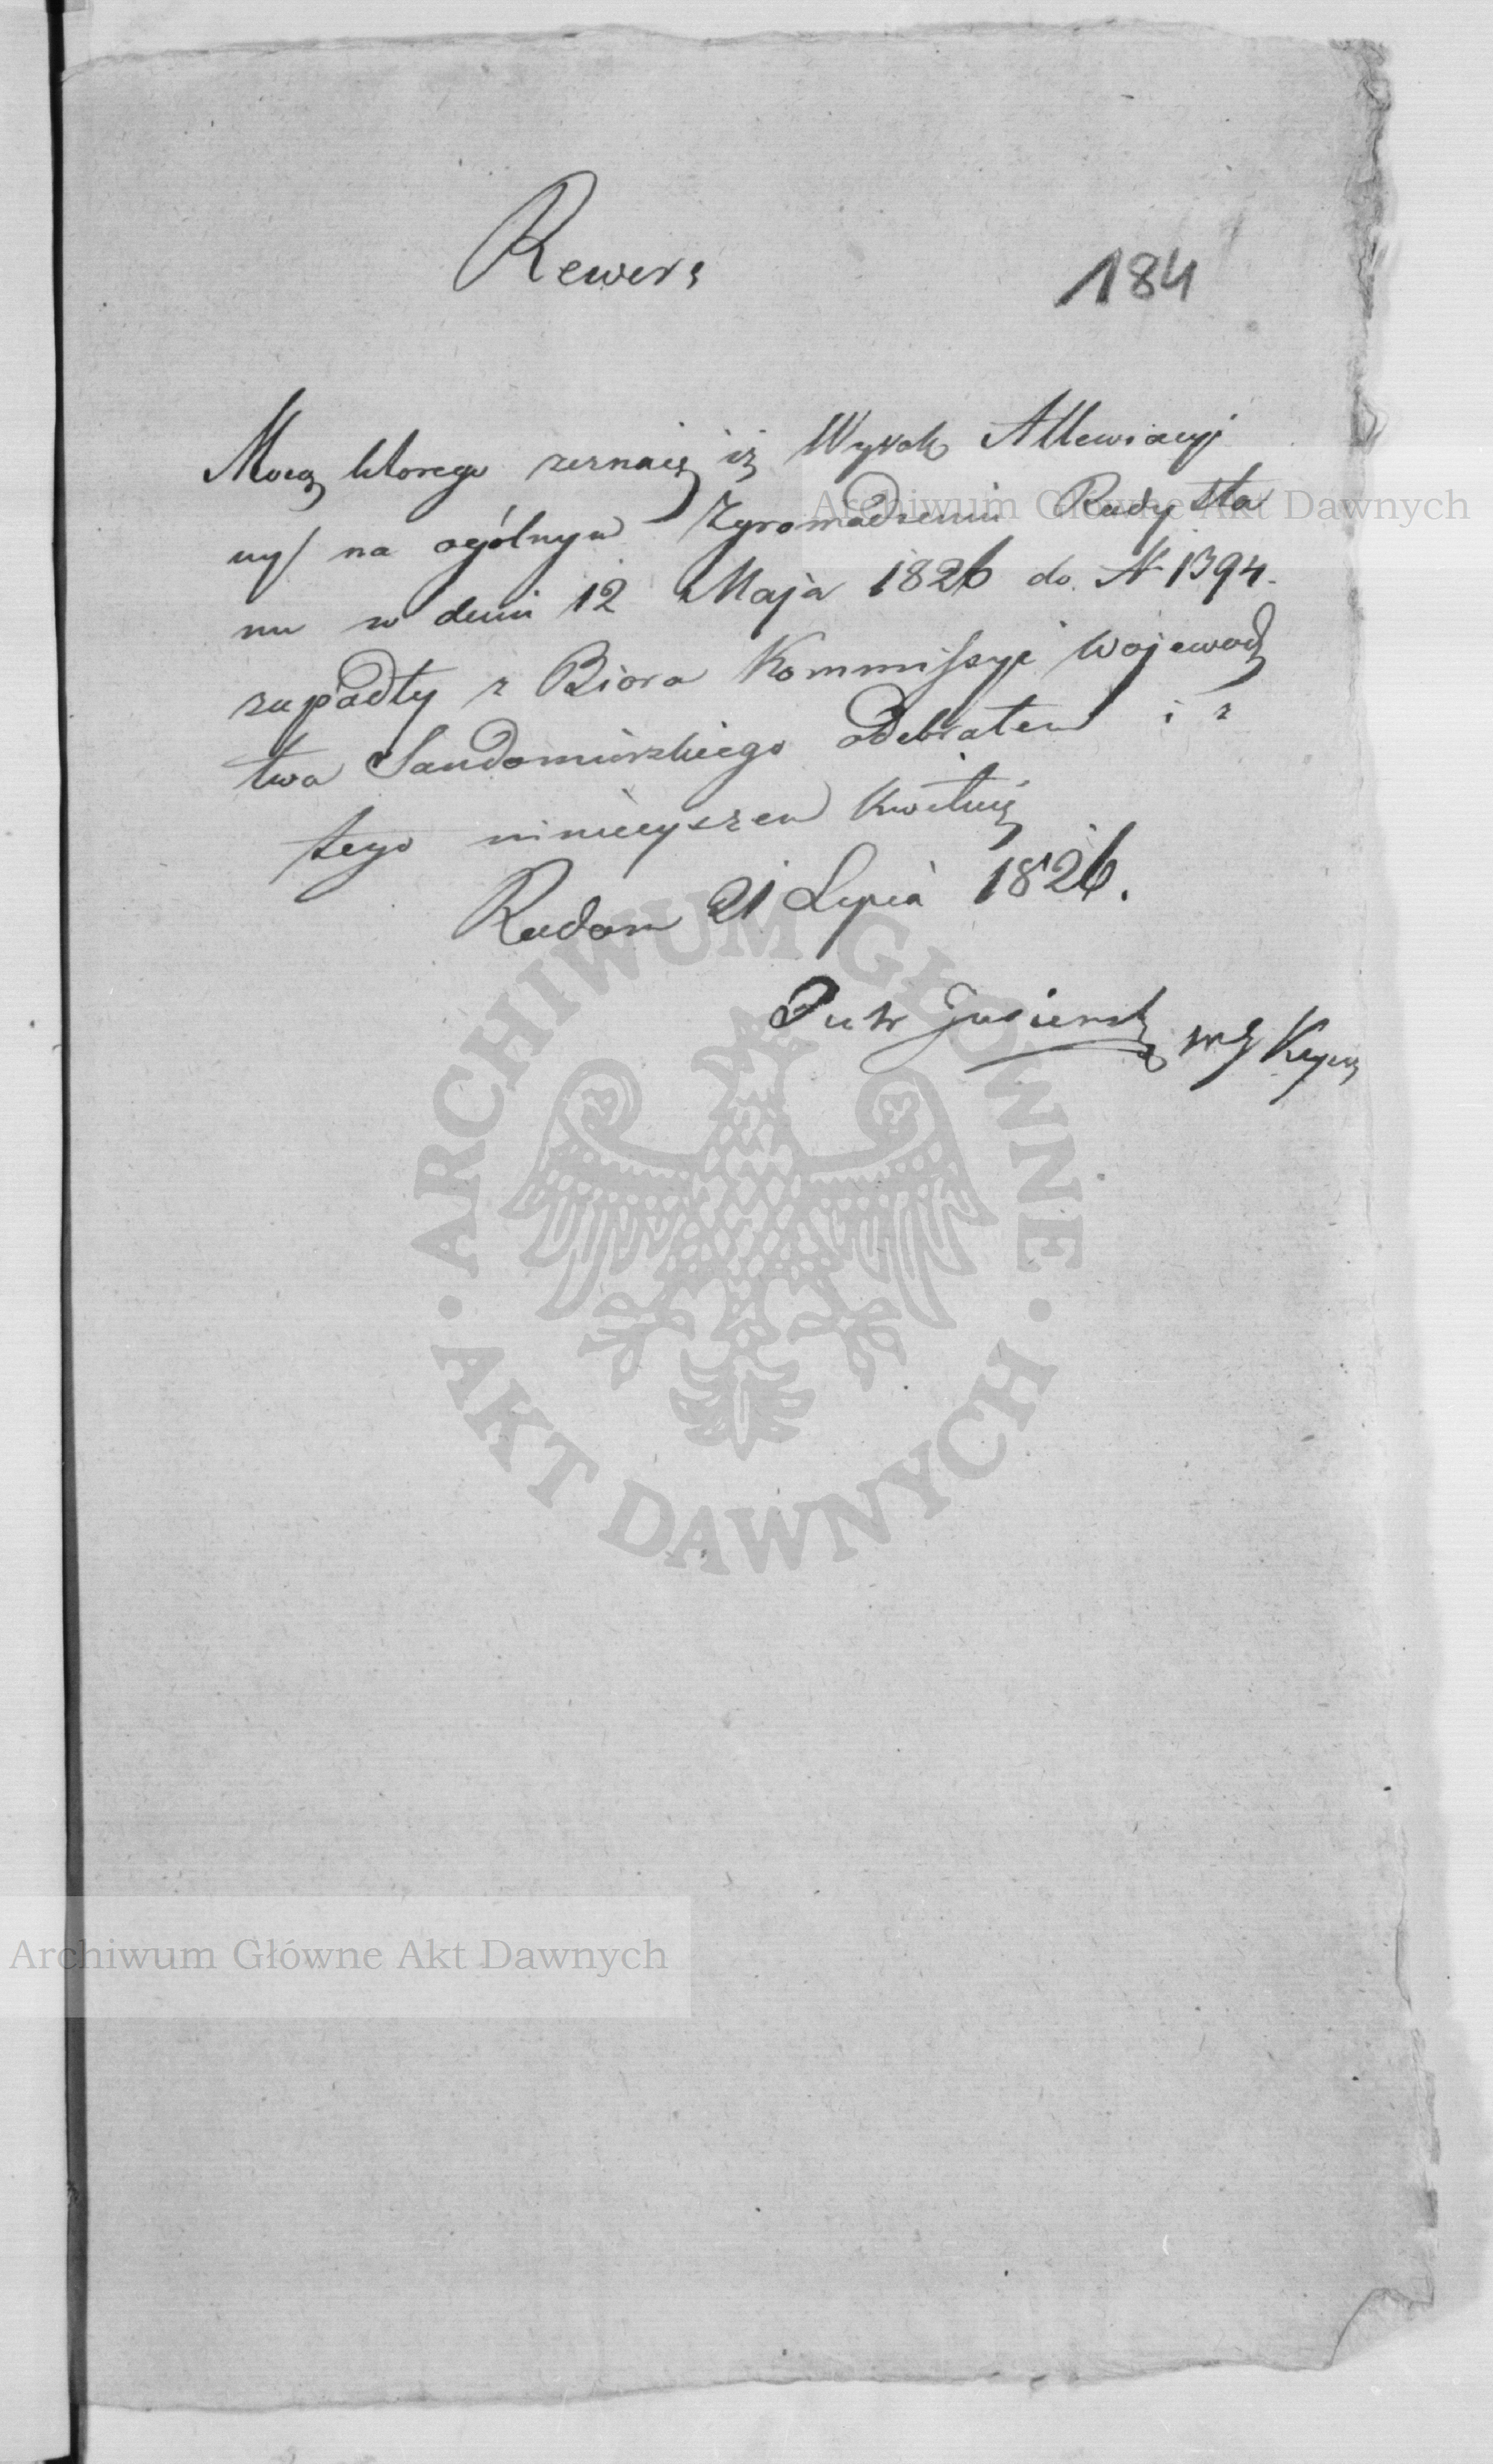 Rewers
184
Mocą ktorego zeznaię iż Wyrok Allewiacyi
ny na ogólnym Zgromadzeniu Rady Sta
nu w dniu 12 Maja 1826 do N 1394.
zapadły z Biora Kommissyi Wojewodz
twa Sandomirskiego odebrałem i z
tego ninieyszem kwituię
Radom 21 Lipca 1826.
Archiwum Główne Akt Dawnych
ARCHIWUM GŁÓWNE
AKT DAWNYCH
Archiwum Główne Akt Dawnych